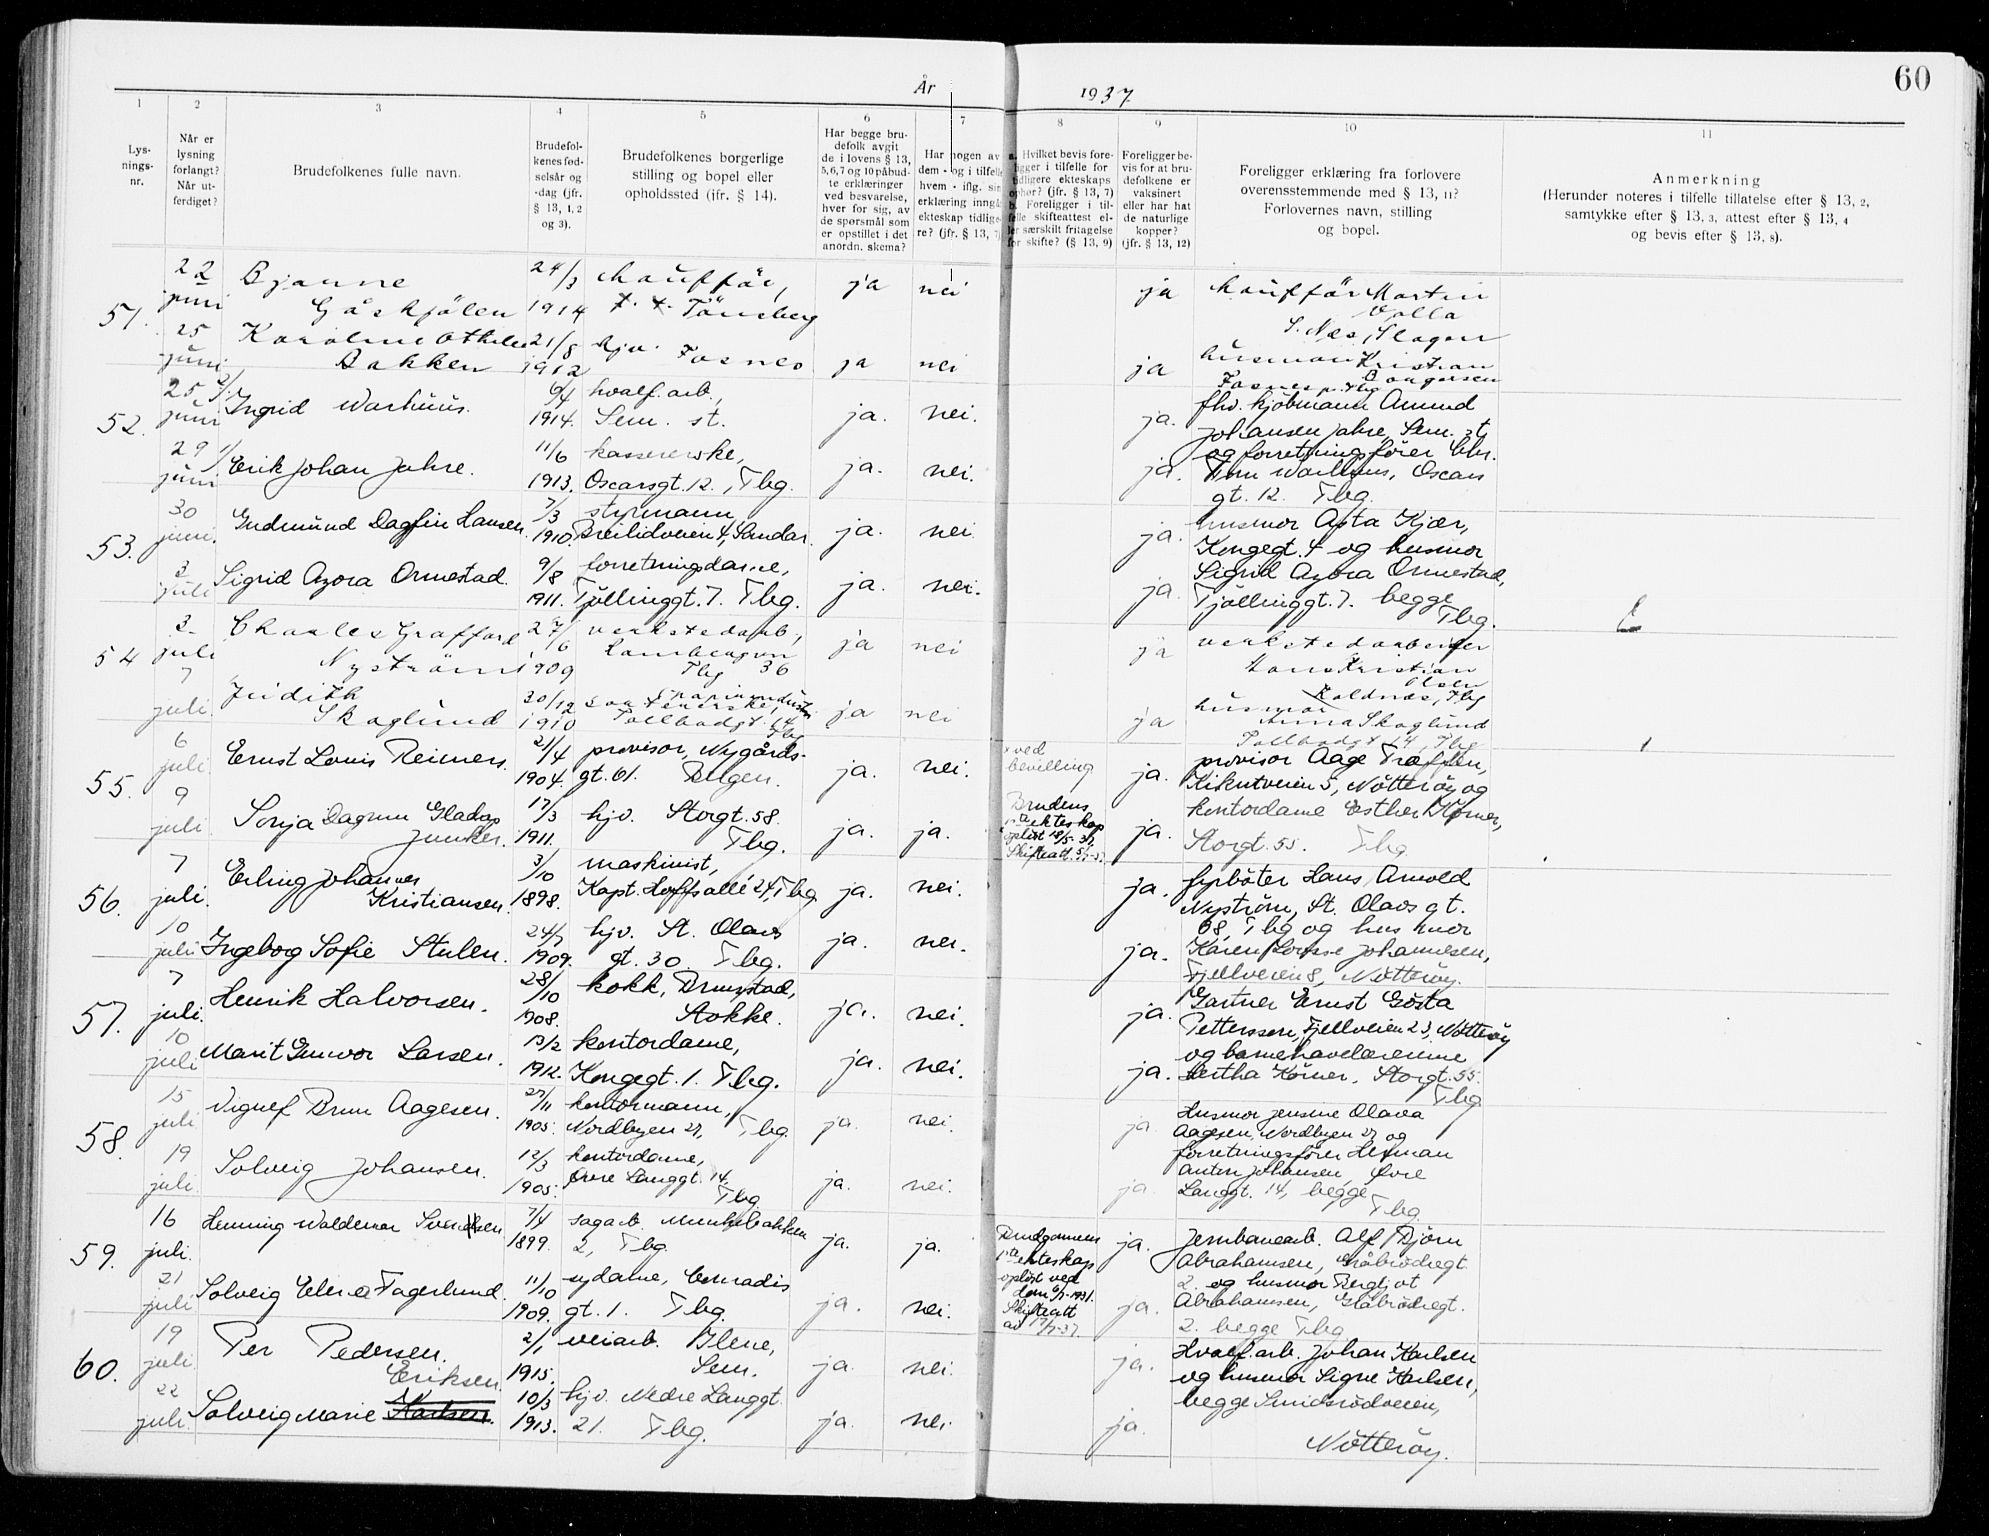 60
År 1937
1 2 3 4 5 6 7 8 9 10 11
Lys-
nings-
nr.
Når er
lysning
forlangt?
Når ut-
ferdiget?
Brudefolkenes fulle navn.
Brudefol-
kenes fød-
selsår og
-dag (jfr.
§ 13, 1, 2
og 3).
Brudefolkenes borgerlige
stilling og bopel eller
opholdssted (jfr. § 14).
Har begge bru-
defolk avgit
de i lovens § 13,
5, 6, 7 og 10 påbud-
te erklæringer
ved besvarelse,
hver for sig, av
de spørsmål som
er opstillet i det
anordn. skema?
Har nogen av
dem - og i tilfelle
hvem - iflg. sin
erklæring inngå
ekteskap tidlige-
re? (jfr. § 13, 7)
a. Hvilket bevis fore-
ligger i tilfelle for
tidligere ekteskaps
ophør? (jfr. § 13, 7)
b. Foreligger i til-
felle skifteattest el-
ler særskilt fritagelse
for skifte? (§ 13, 9)
Foreligger be-
vis for at bru-
defolkene er
vaksinert
eller har hat
de naturlige
kopper?
(jfr. § 13, 12)
Foreligger erklæring fra forlovere
overensstemmende med § 13, 11?
Forlovernes navn, stilling
og bopel.
Anmerkning
(Herunder noteres i tilfelle tillatelse efter § 13, 2,
samtykke efter § 13, 3, attest efter § 13, 4
og bevis efter § 13, 8).
51. 22 juni Bjarne Gåskjölen 24/3 1914 chaufför, Tönsberg ja nei ja chaufför Martin Volla
S. Nes, Slagen
25 juni Karoline Othelie Bakken 21/8 1912 hjv. Fosnes ja nei ja husmor Kristian
52. 25 juni Ingrid Warhuus. 6/4 1914. hvalf.arb., Sem. st. ja. nei. ja. fhv. kjöbmann Amund
Johansen Jahre, Sem. st
og forretningsförer Chr.
29 juni Erik Johan Jahre. 11/6 1913. kassererske, Oscarsgt. 12., Tbg. ja. nei. ja. Warhuus, Oscars
gt. 12. Tbg.
53. 30 juni. Gudmund Dagfin Hansen. 7/3 1910. styrmann, Breilidveien 4, Sandar. ja. nei. ja. husmor Asta Kjær,
Kongegt. 4 og husmor
3 juli Sigrid Azora Ormestad. 9/8 1911. forretningsdame, Tjöllinggt. 7. Tbg. ja. nei. ja. Sigrid Azora Ormestad,
Tjöllinggt. 7. begge
Tbg.
54 3 juli Charles Grafford Nyström 27/6 1909 verkstedarb., Tbg 36 ja nei ja verkstedarbeider
Hans Kristian
Olsen
Kaldnæs, Tbg
7 juli. Judith Skoglund 20/12 1910 Tollbodgt. 14 Tbg ja nei ja husmor
Anna Skoglund
Tollbodgt 14, Tbg
55. 6 juli Ernst Louis Reimers. 21/4 1904. provisor, Nygårds- gt. 61. Bergen. ja. nei. ved
bevilling ja. provisor Aage Træffen,
Kikutveien 5, Nötteröy og
9 juli Sonja Dagrun Gladys Junker. 17/3 1911. hjv. Storgt. 58. Tbg. ja. ja. Brudens
1ste ekteskap
oplöst 18/5-37,
Skifteatt. ja. kontordame Esther Körner,
Storgt. 55. Tbg
56. 7 juli. Erling Johannes Kristiansen. 3/10 1898. maskinist, Kapt. Hoffs allé 24, Tbg ja. nei. ja. fyrböter Hans Arnold
Nyström, St. Olavs gt.
68, Tbg og husmor
10 juli Ingebog Sofie Stulen. 24/7 1909. hjv. St. Olavs gt. 30. Tbg. ja. nei. ja. Karen Lovise Johannesen,
Fjellveien 8, Nötteröy.
57. 7 juli. Henrik Halvorsen. 28/10 1908. kokk, Brunstad, Stokke. ja. nei. ja. Gartner Ernst Gösta
Pettersson, Fjellveien 23, Nötteröy
og barnehavelærerinne
10 juli Marit Gunvor Larsen. 13/2 1912. kontordame, Kongegt. 1. Tbg. ja. nei. ja. Hertha Körner, Storgt. 55.
Tbg
58. 15 juli Vignef Brun Aagesen. 27/11 1905. kontormann, Nordbyen 27, Tbg. ja. nei. ja. Husmor Jensine Olava
Aagesen, Nordbyen 27 og
forretningsförer Herman
19 juli. Solveig Johansen. 12/3 1905. kontordame, Övre Langgt. 14. Tbg. ja. nei. ja. Anton Johansen, Övre
Langgt. 14, begge
Tbg.
59. 16 juli. Henning Waldemar Svendsen. 7/4 1899. sagarb. Munkebakken 2, Tbg. ja. ja. Brudgommens
1ste ekteskap
oplöst ved
dom 6/7-1931.
Skifteatt
av 17/7-37. ja. Jernbanearb. Alf Björn
Abrahamsen, Gråbrödregt.
2. og husmor Bergljot
21 juli Solveig Elena Fagerlund. 11/10 1909. sydame, Conradis gt. 1. Tbg. ja. nei. ja. Abrahamsen, Gråbrödregt.
2. begge Tbg
60. 19 juli. Per Pedersen. 2/1 1915. veiarb. Blene, Sem. ja. nei. ja. Hvalf.arb. Johan Karlsen
og husmor Signe Karlsen,
22 juli. Solveig Marie Karlsen. Eriksen. 10/3 1913. hjv. Nedre Langgt. 21. Tbg. ja. nei. ja. begge Smidsrödveien,
Nötteröy.